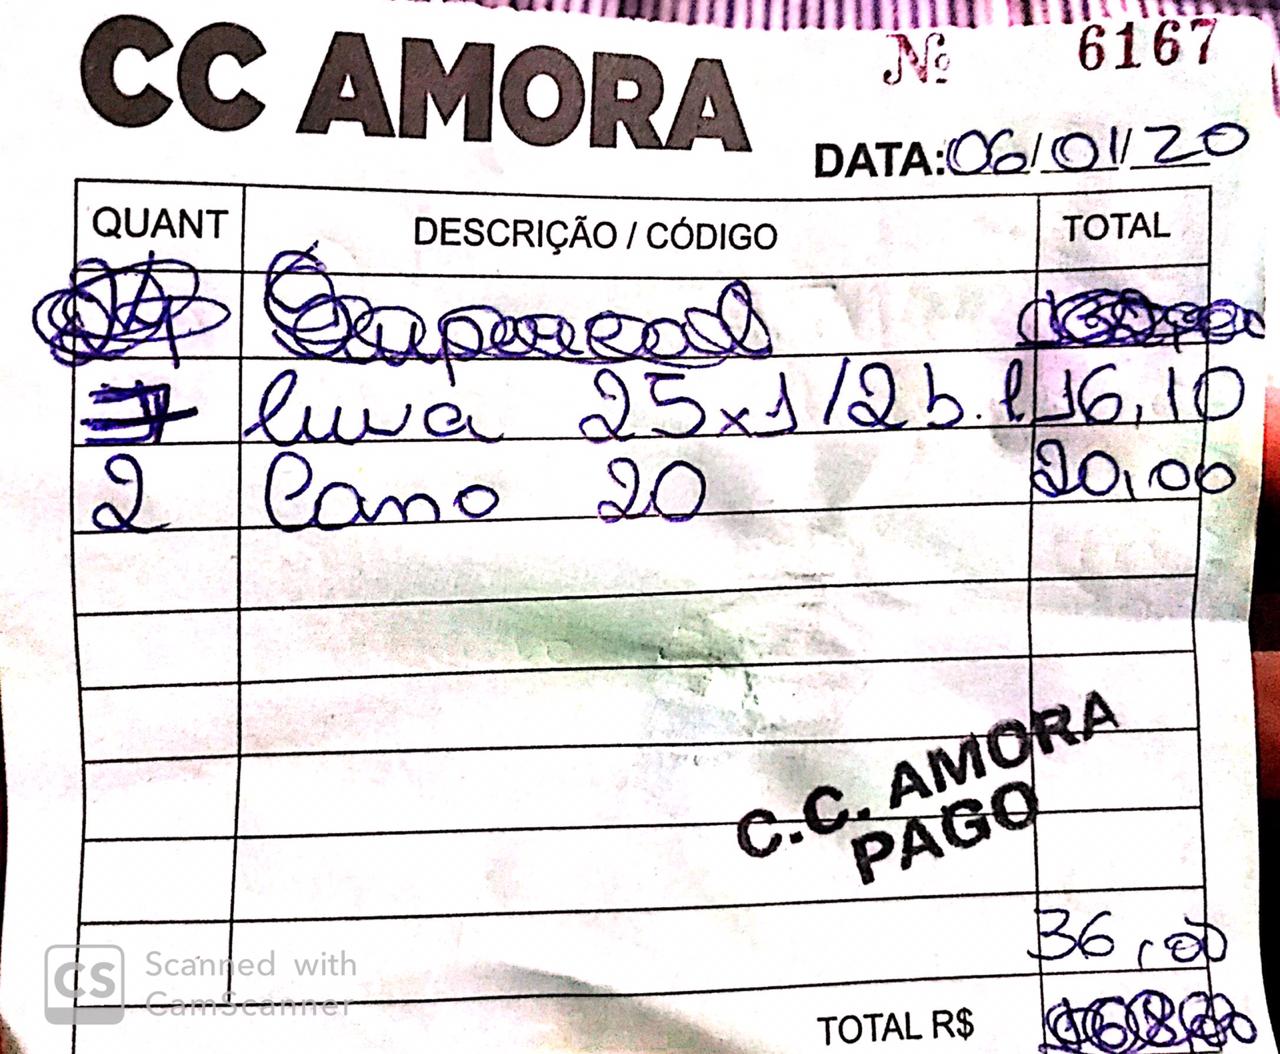 CC AMORA
Nº 6167
DATA: 06/01/20
QUANT DESCRIÇÃO / CÓDIGO TOTAL
luva 25x1/2 b. l 16,10
2 Cano 20 20,00
C.C. AMORA
PAGO
36,00
TOTAL R$
CS Scanned with
CamScanner